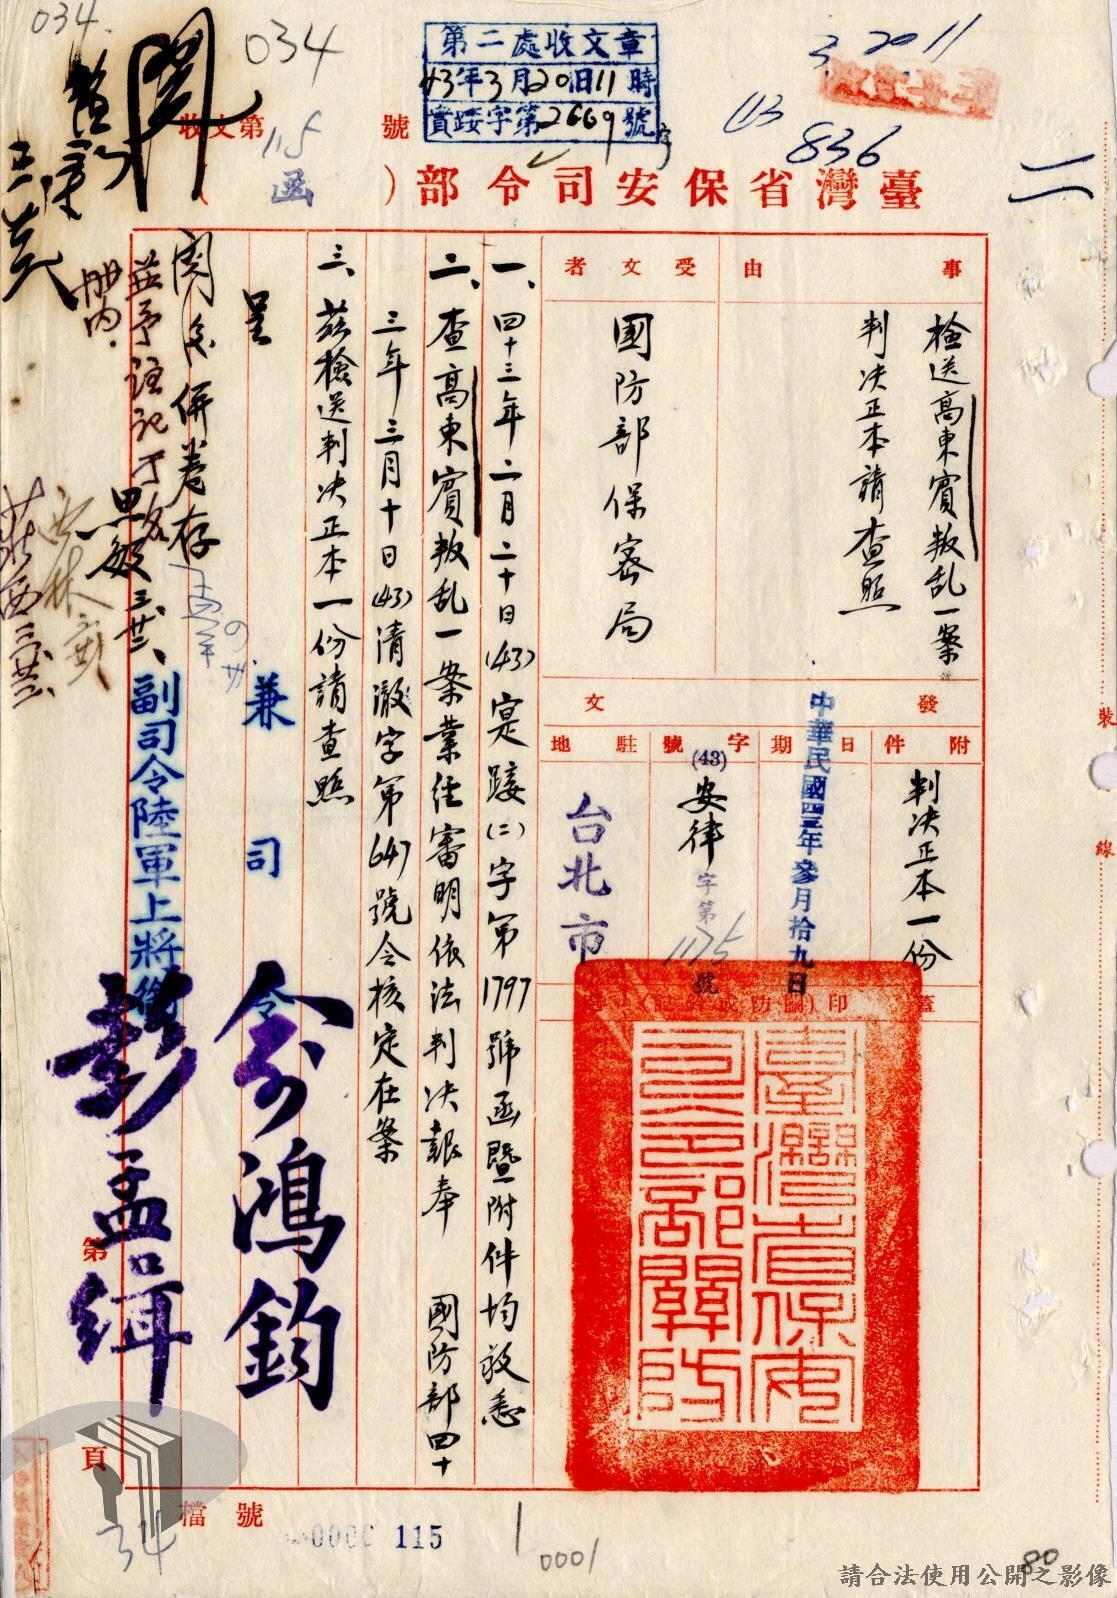 034
034
第二處收文章
43年3月20日11時
實踐字第2669號
3 20 11
836
收文第115號
臺灣省保安司令部
函
二
事由
檢送高東賓叛乱一案
判决正本請查照
受文者
國防部保密局
發文
附件
判决正本一份
日期
中華民國四三年參月拾九日
字號
(43)安律字第1175號
駐地
台北市
臺灣省保安司令部關防
一、四十三年二月二十日(43)寔踐(二)字第1797號函暨附件均敬悉
二、查高東賓叛乱一案業經審明依法判决報奉 國防部四十
三年三月十日(43)清澈字第647號令核定在案
三、茲檢送判决正本一份請查照
兼司令
俞鴻鈞
副司令陸軍上將銜
彭孟緝
閱
呈
閱后併卷存
並予註記于名
冊內
第頁
34
檔號
115
0001
80
裝
線
請合法使用公開之影像